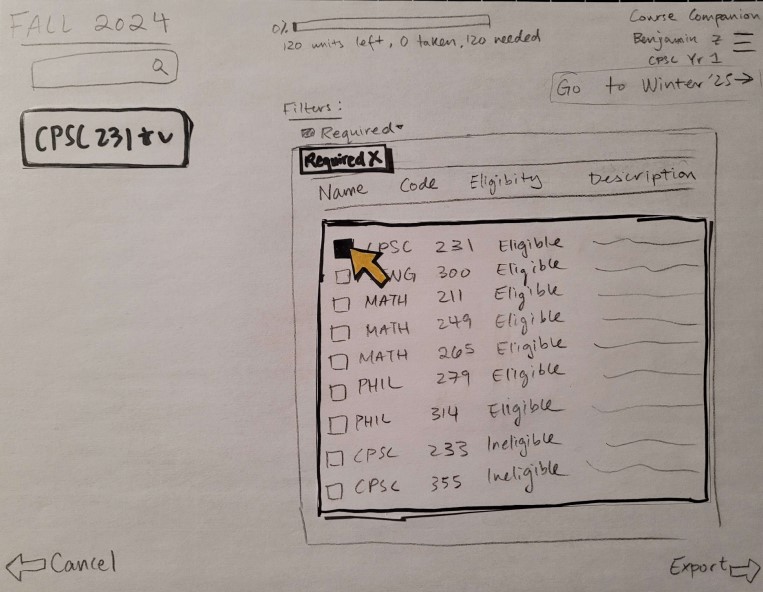 FALL 2024
0%
120 units left, 0 taken, 120 needed
Course Companion
Benjamin Z
CPSC Yr 1
Go to Winter '25
CPSC 231
Filters:
Required
Required X
Name Code Eligibity Description
CPSC 231 Eligible
300 Eligible
MATH 211 Eligible
MATH 249 Eligible
MATH 265 Eligible
PHIL 279 Eligible
PHIL 314 Eligible
CPSC 233 Ineligible
CPSC 355 Ineligible
Cancel
Export